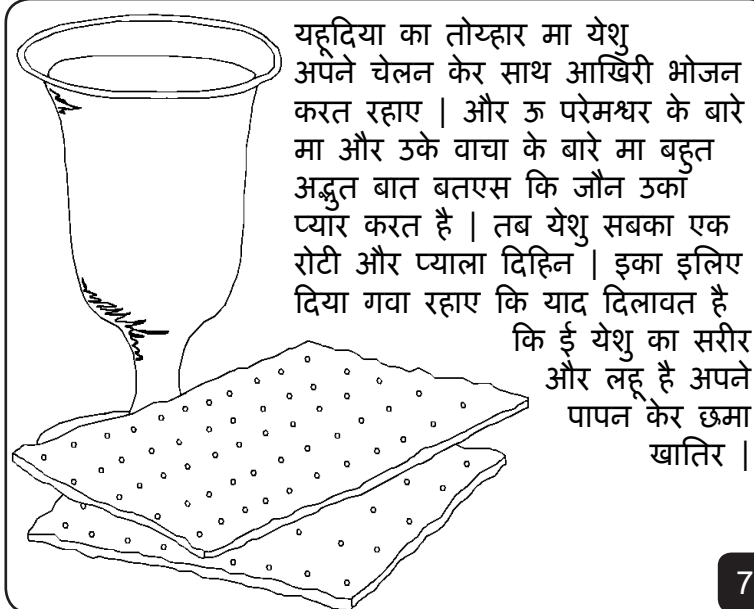 यहूदिया का तोय्हार मा येशु
अपने चेलन केर साथ आखिरी भोजन
करत रहाए | और ऊ परेमश्वर के बारे
मा और उके वाचा के बारे मा बहुत
अद्भुत बात बतएस कि जौन उका
प्यार करत है | तब येशु सबका एक
रोटी और प्याला दिहिन | इका इलिए
दिया गवा रहाए कि याद दिलावत है
कि ई येशु का सरीर
और लहू है अपने
पापन केर छमा
खातिर |
7